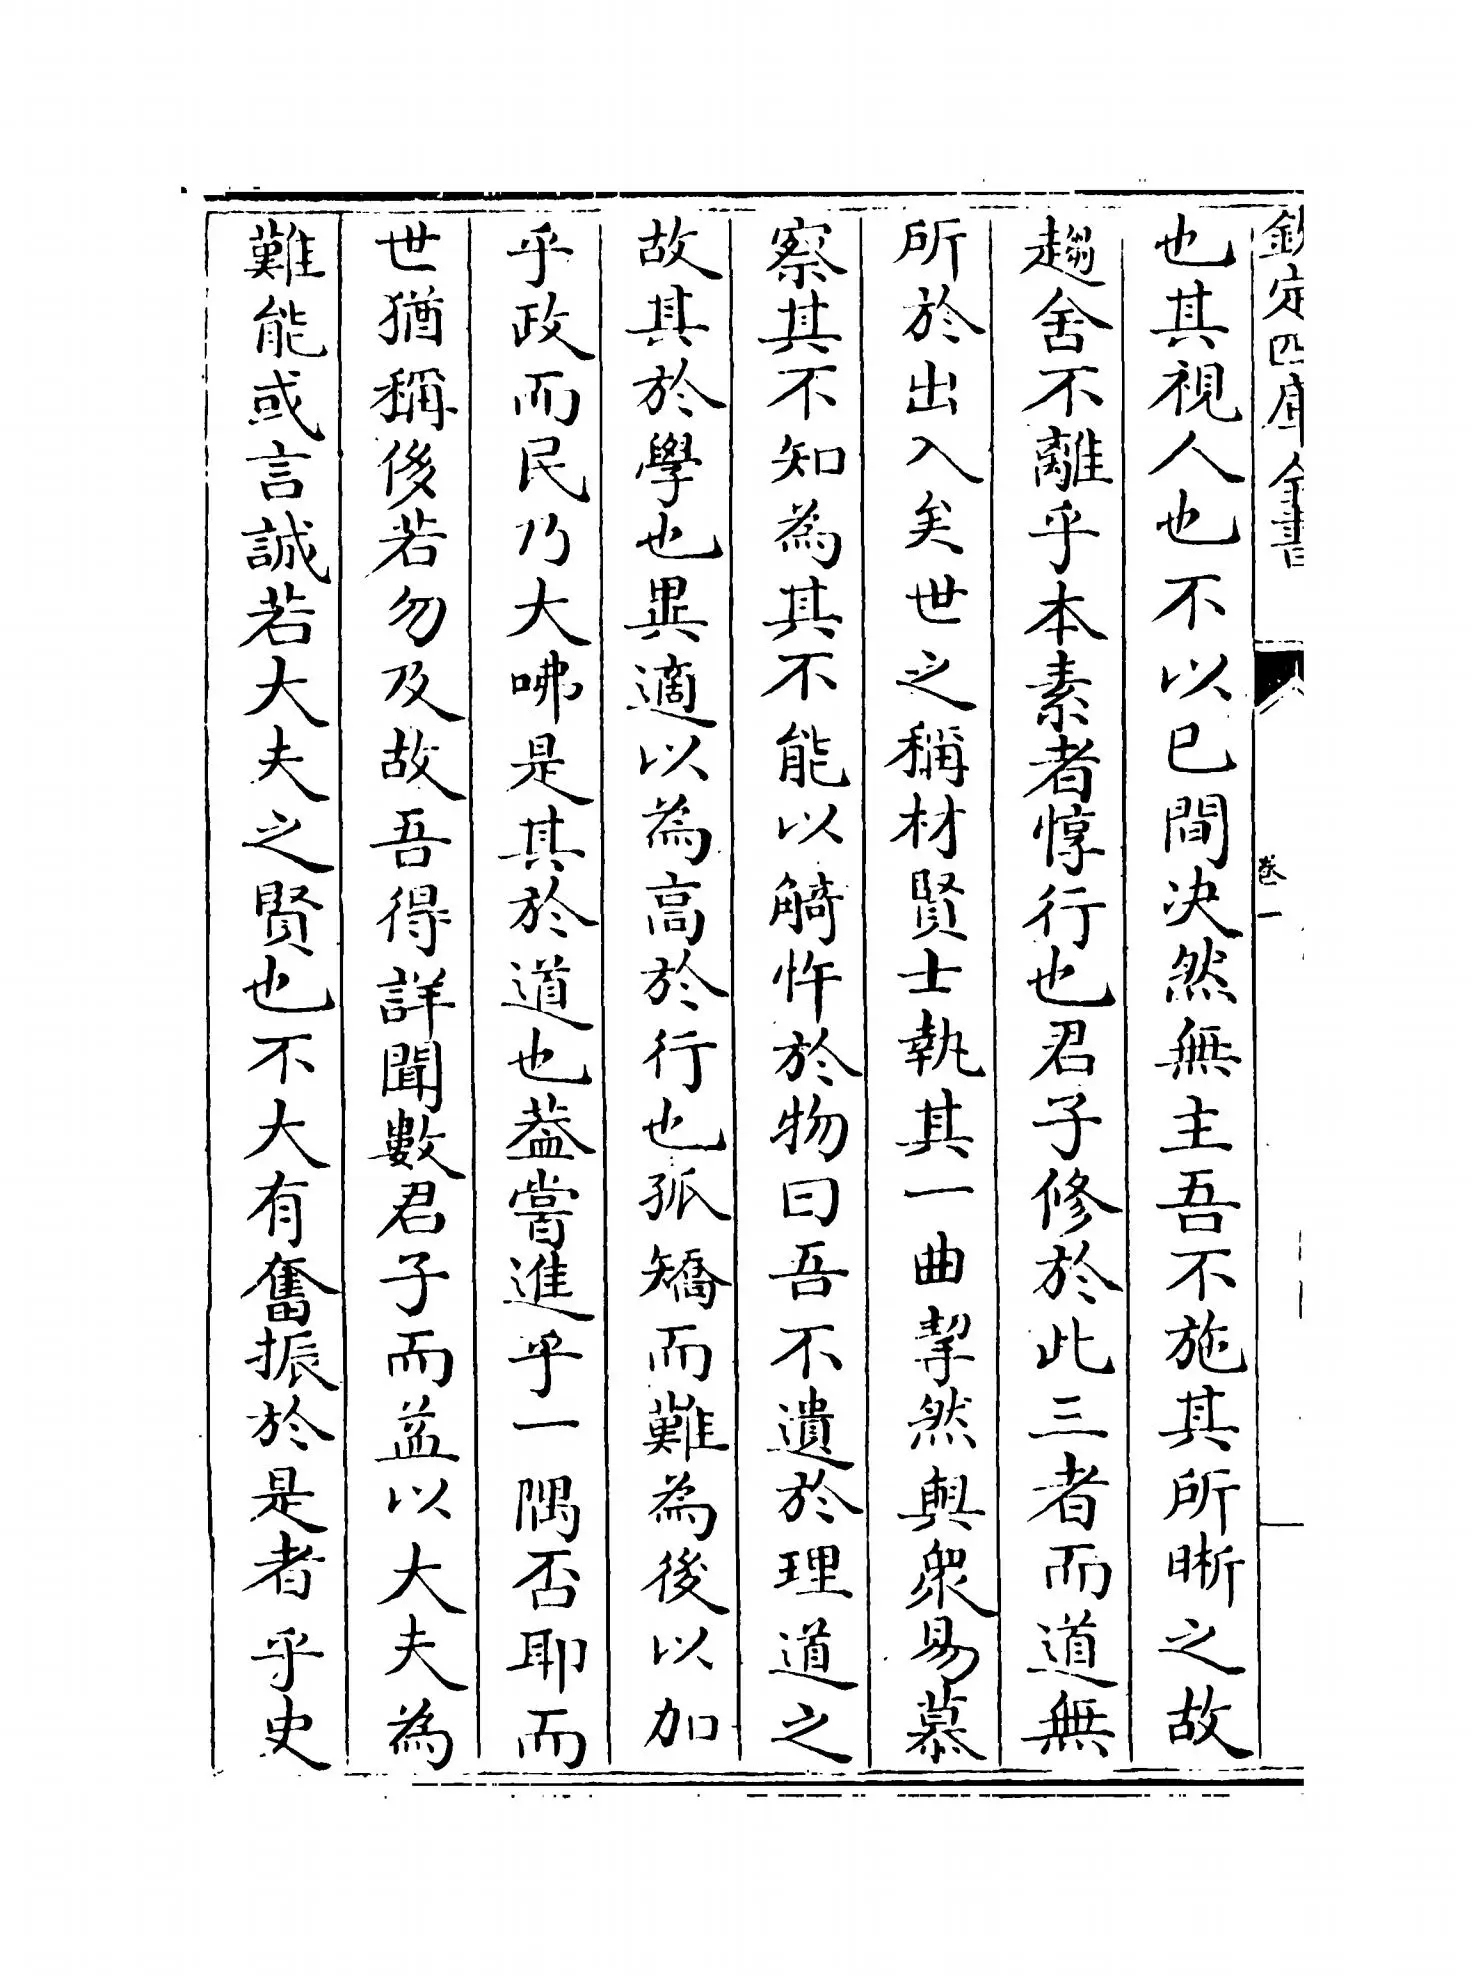 欽定四庫全書
卷一
也其視人也不以已間决然無主吾不施其所晣之故
趨舍不離乎本素者惇行也君子修於此三者而道無
所於出入矣世之稱材賢士執其一曲挈然與衆易慕
察其不知為其不能以觭忤於物曰吾不遺於理道之
故其於學也異適以為高於行也孤矯而難為後以加
乎政而民乃大咈是其於道也葢嘗進乎一隅否耶而
世猶稱後若勿及故吾得詳聞數君子而益以大夫為
難能或言誠若大夫之賢也不大有奮振於是者乎史